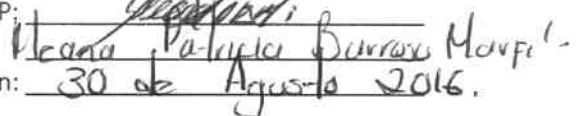 P:
Ileana Patricia Burrow Marfi'-
n: 30 de Agusto 2016.